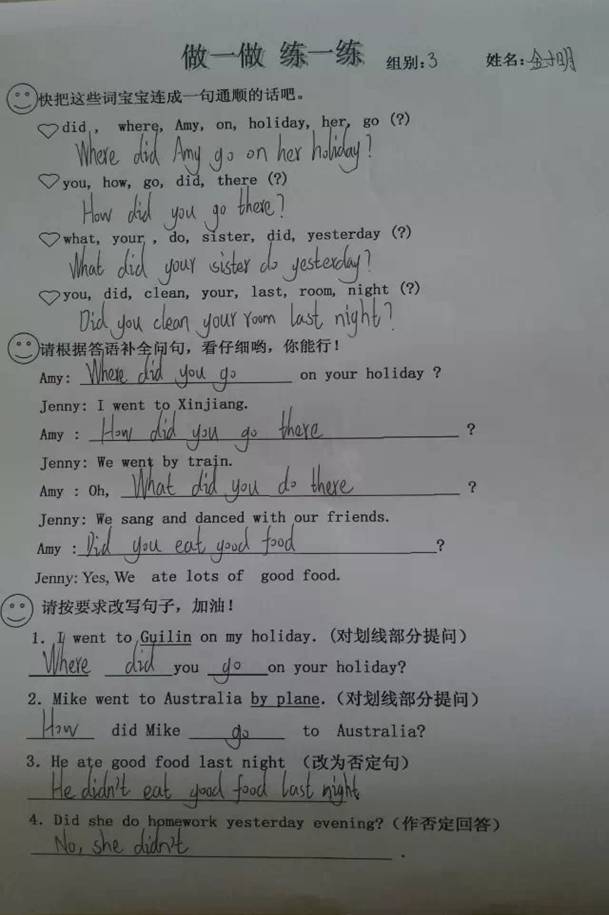 做一做 练一练 组别:3 姓名:
快把这些词宝宝连成一句通顺的话吧。
did , where, Amy, on, holiday, her, go (?)
Where did Amy go on her holiday?
you, how, go, did, there (?)
How did you go there?
what, your , do, sister, did, yesterday (?)
What did your sister do yesterday?
you, did, clean, your, last, room, night (?)
Did you clean your room last night?
请根据答语补全问句，看仔细哟，你能行！
Amy: Where did you go on your holiday ?
Jenny: I went to Xinjiang.
Amy : How did you go there ?
Jenny: We went by train.
Amy : Oh, What did you do there ?
Jenny: We sang and danced with our friends.
Amy : Did you eat good food ?
Jenny: Yes, We ate lots of good food.
请按要求改写句子，加油！
1. I went to Guilin on my holiday. (对划线部分提问)
Where did you go on your holiday?
2. Mike went to Australia by plane. (对划线部分提问)
How did Mike go to Australia?
3. He ate good food last night （改为否定句）
He didn't eat good food last night
4. Did she do homework yesterday evening?（作否定回答）
No, she didn't .